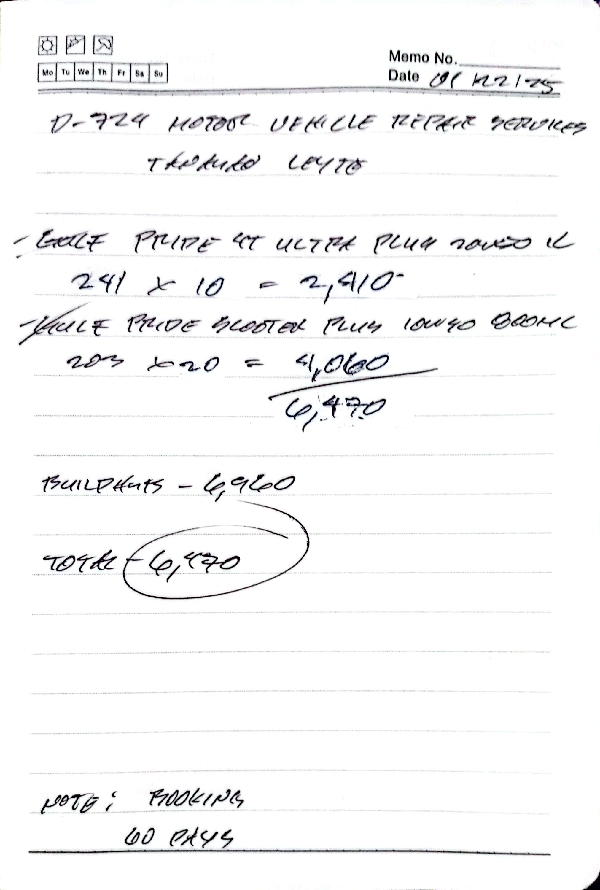 Memo No.
Mo Tu We Th Fr Sa Su
Date 01/22/25
D-724 MOTOR VEHICLE REPAIR SERVICES
TANAUAN LEYTE
PRIDE 4T ULTRA PLUS 20W50 1L
241 x 10 = 2,410
PRIDE SCOOTER PLUS 10W40 800ML
203 x 20 = 4,060
6,470
- 6,960
TOTAL - 6,470
NOTE: BOOKING
60 DAYS